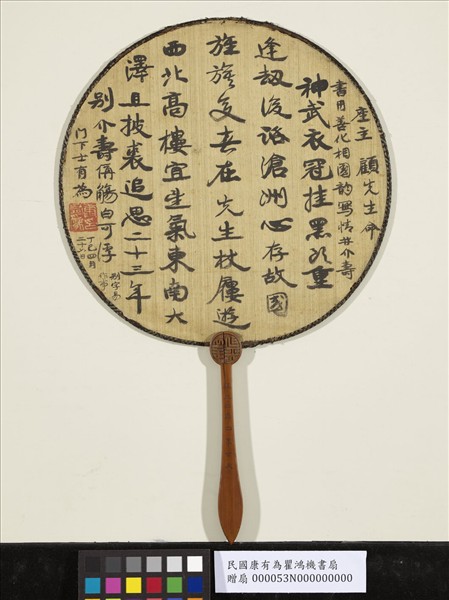 座主 顧先生命
書用善化相國韵寫情並介壽
神武衣冠挂黑頭重
逢劫後話滄洲心存故國
旌旗 春在先生杖屨遊
西北高樓宜生氣東南大
澤且披裘追思二十三年
別介壽稱觴白可浮
門下士有為
丁巳四月
二十八日
別字易
民國康有為瞿鴻機書扇
贈扇 000053N000000000